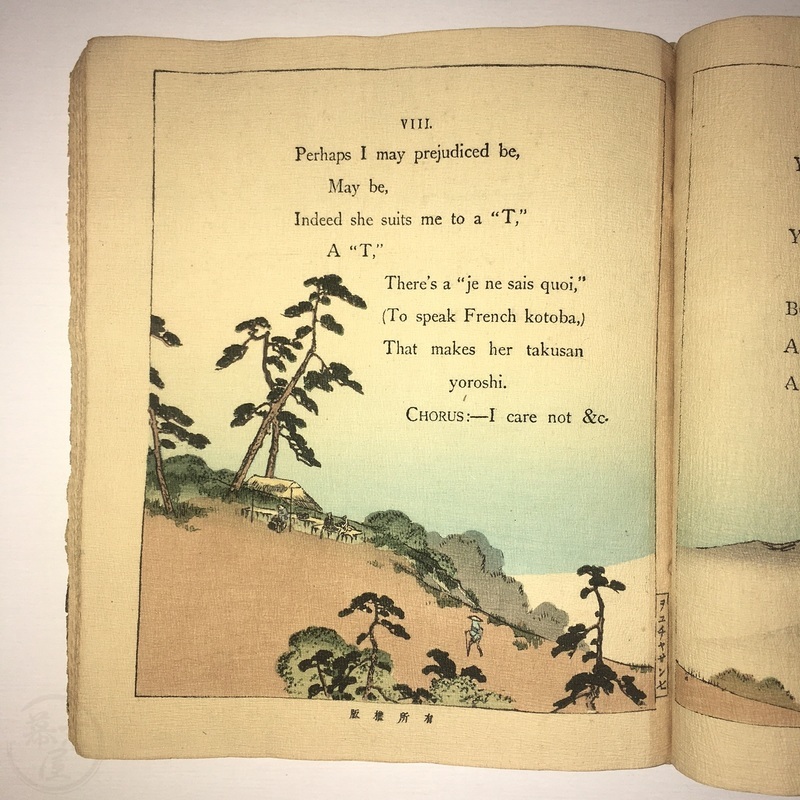 VIII.
Perhaps I may prejudiced be,
May be,
Indeed she suits me to a “T,”
A “T,”
There's a “je ne sais quoi,”
(To speak French kotoba,)
That makes her takusan
yoroshi.
CHORUS:—I care not &c.
版權所有
Y
Y
A
A